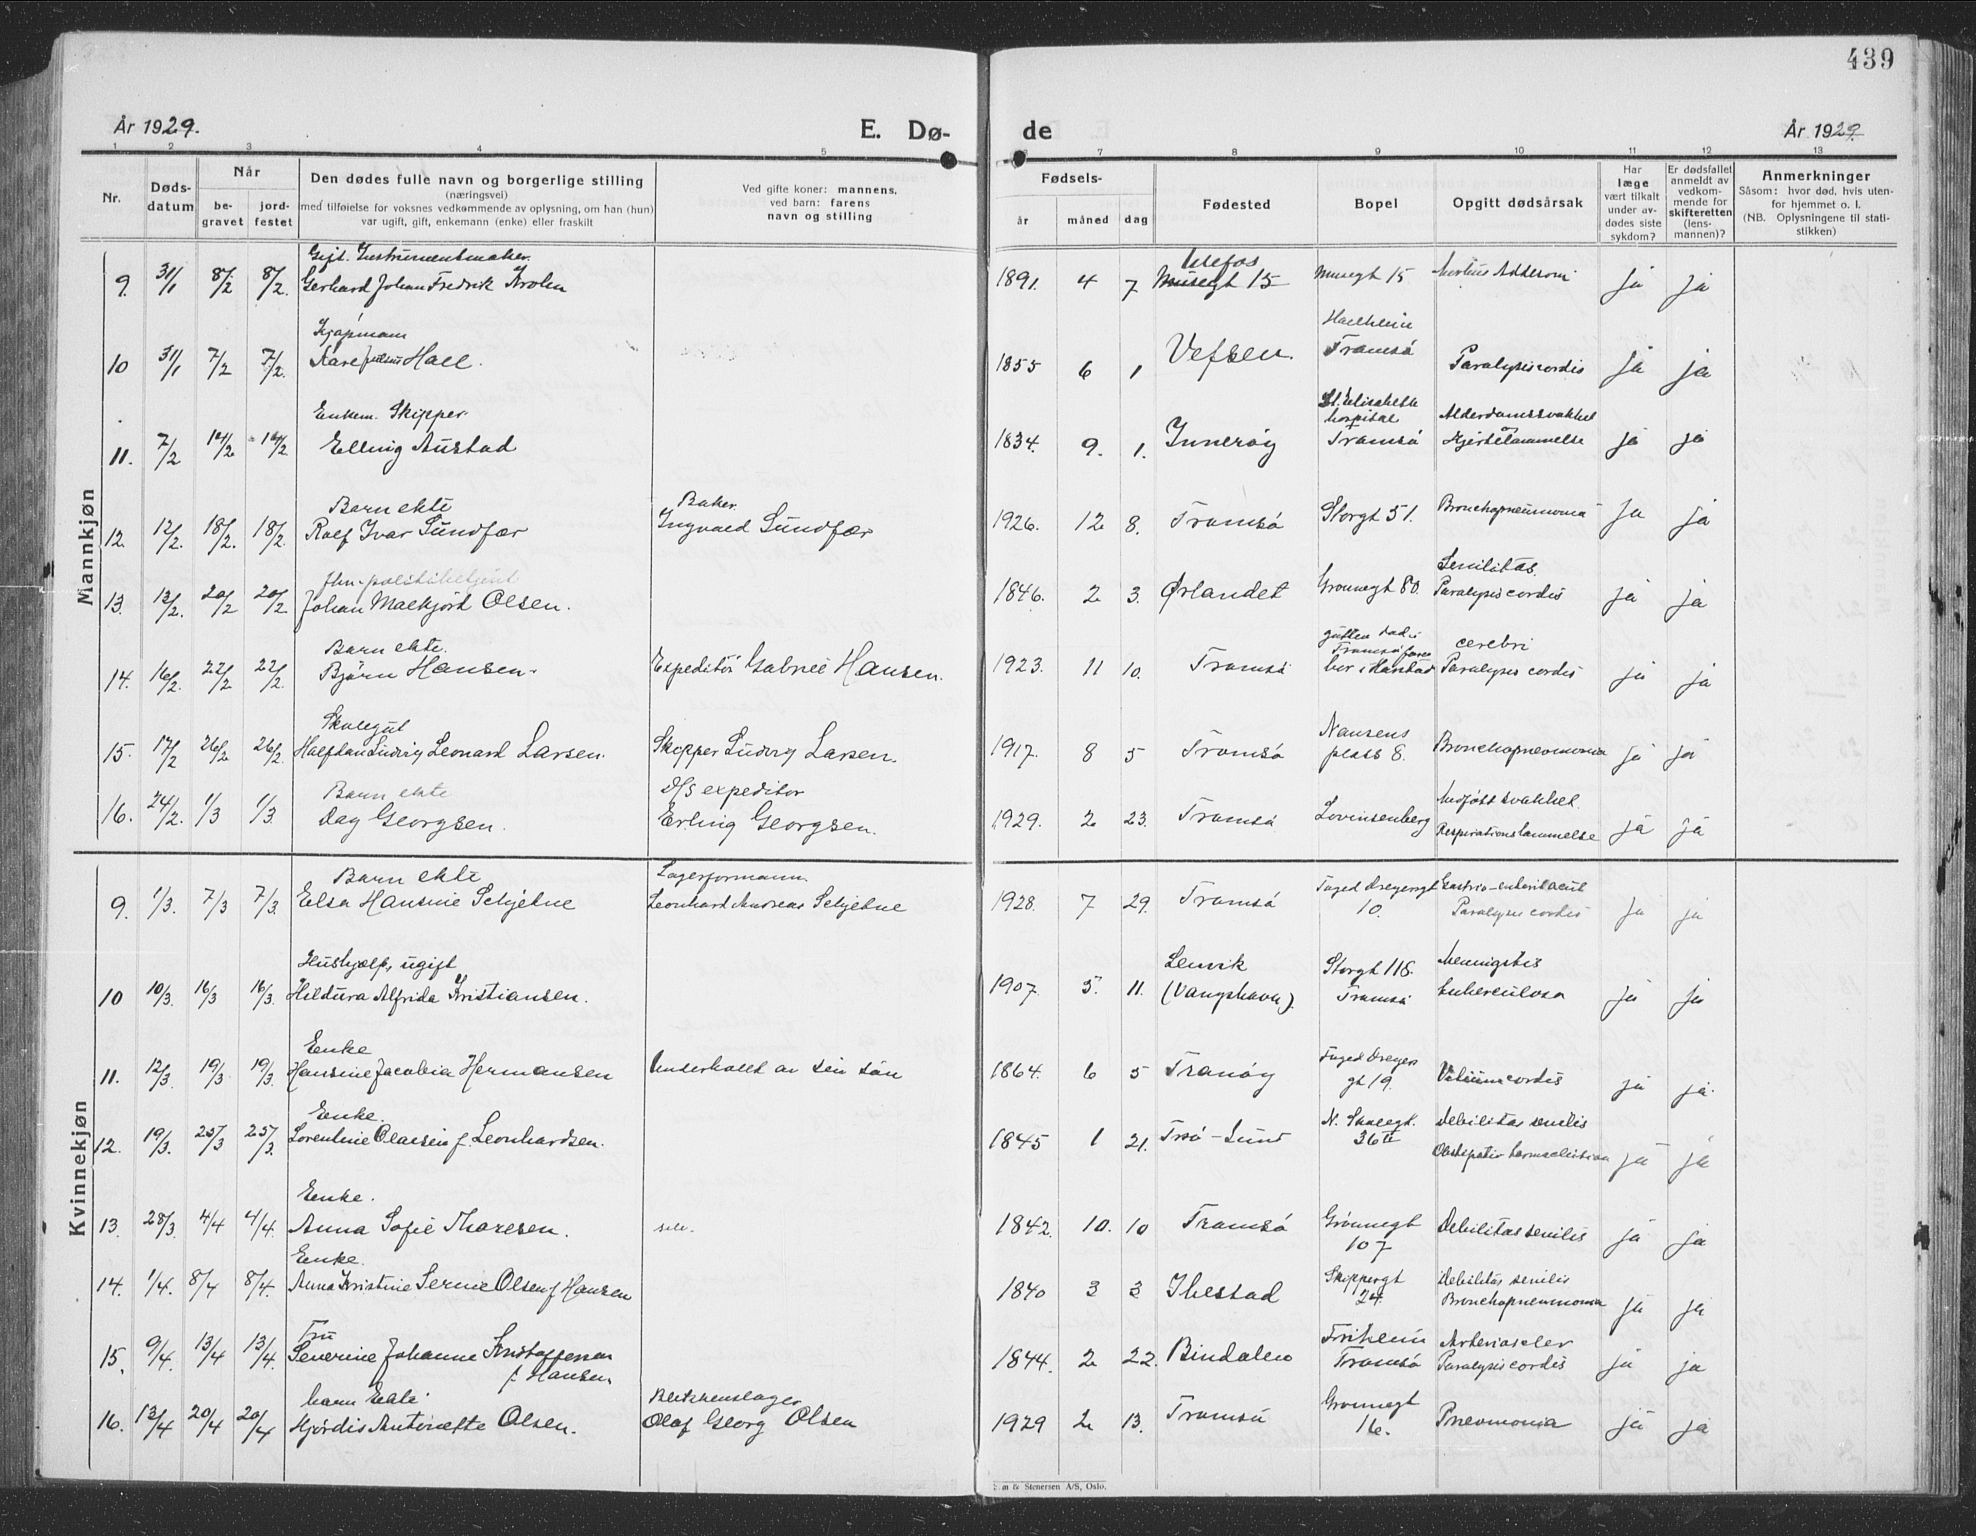 439
År 1929.
E. Dø-
de
År 1929
1 2 3 4 5 6 7 8 9 10 11 12 13
Nr.
Døds-
datum
Når
be-
gravet
jord-
festet
Den dødes fulle navn og borgerlige stilling
(næringsvei)
med tilføielse for voksnes vedkommende av oplysning, om han (hun)
var ugift, gift, enkemann (enke) eller fraskilt
Ved gifte koner: mannens,
ved barn: farens
navn og stilling
Fødsels-
år måned dag
Fødested
Bopel
Opgitt dødsårsak
Har
læge
vært tilkalt
under av-
dødes siste
sykdom?
Er dødsfallet
anmeldt av
vedkom-
mende for
skifteretten
(lens-
mannen)?
Anmerkninger
Såsom: hvor død, hvis uten-
for hjemmet o. l.
(NB. Oplysningene til stati-
stikken)
Mannkjøn
Gift. Instrumentmaker.
9. 31/1 8/2 8/2. Gerhard Johan Fredrik Krohn 1891. 4 7 Musegt 15 Musegt 15 Morbus Addisoni ja ja
Kjøpmann
10 31/1 7/2 7/2. Hall. 1855 6 1 Vefsen. Tromsø Paralysis cordis ja ja
Enkem. Skipper.
11. 7/2 14/2 14/2 Elling Austad 1834. 9. 1. Inderøy St. Elisabeth hospital Tromsø Alderdomssvakhet Hjertelammelse ja ja
Barn ekte Baker.
12. 12/2. 18/2. 18/2. Rolf Ivar Sundfær Ingvald Sundfær 1926. 12 8. Tromsø Storgt 51. Bronchopneumonia ja ja
Senilitas.
13. 13/2. 20/2 20/2. Johan Olsen. 1846. 2 3. Ørlandet Grønnegt 80. Paralysis cordis ja ja
Barn ekte. cerebri
14. 16/2. 22/2 22/2. Bjørn Hansen. Expeditør Gabriel Hansen. 1923. 11 10. Tromsø bor i Harstad Paralysis cordis ja ja
Skolegut Nansens
15. 17/2 26/2 26/2. Halfdan Ludvig Leonard Larsen. Skipper Ludvig Larsen. 1917. 8 5 Tromsø plass 8. Bronchopneumonia ja ja
Barn ekte D/S expeditør Medfødt svakhet.
16. 24/2. 1/3 1/3. Dag Georgsen. Erling Georgsen. 1929. 2 23. Tromsø Lovinsenberg Respirationslammelse ja ja
Kvinnekjøn
Barn ekte Lagerformann.
9. 1/3. 7/3 7/3. Elsa Hansine Schjelme Leonhard Andreas Schjelme 1928. 7 29. Tromsø 10. Paralysis cordis ja ja
Hushjælp, ugift Lenvik Storgt 118. Meningitis
10 10/3. 16/3 16/3. Hildura Alfrida Kristiansen. 1907. 5. 11. (Vangshavn). Tromsø tuberculosa ja ja
Enke
11. 12/3. 19/3 19/3. Hansine Jacobia Hermansen Underholdt av sin søn 1864. 6 5 Tranøy gt 19. Vitium cordis ja ja.
Enke. N. Skolegt. Debilitas senilis
12. 19/3. 25/3 25/3. Lorentine Olausen f. Leonhardsen. 1845 1 21. Trsø-Sund ja ja
Enke.
13. 28/3. 4/4 4/4. Anna Sofie Thoresen. selv. 1842. 10. 10 Tromsø Grønnegt 107 Debilitas senilis ja ja
Enke. Skippergt Debilitas senilis
14. 1/4. 8/4 8/4. Anna Kristine Olsen f Hansen 1840 3 3 Ibestad 24. Bronchopneumonia ja ja
Fru
15. 9/4. 13/4 13/4. Severine Johanne Kristoffersen 1844. 2 22. Bindalen Tromsø Paralysis cordis ja ja
f. Hansen.
barn Ekte Blikkenslager Grønnegt
16. 13/4 20/4 20/4 Hjørdis Antonette Olsen. Olaf Georg Olsen 1929 2 13. Tromsø 16. Pneumonia ja ja
& Stenersen A/S, Oslo.